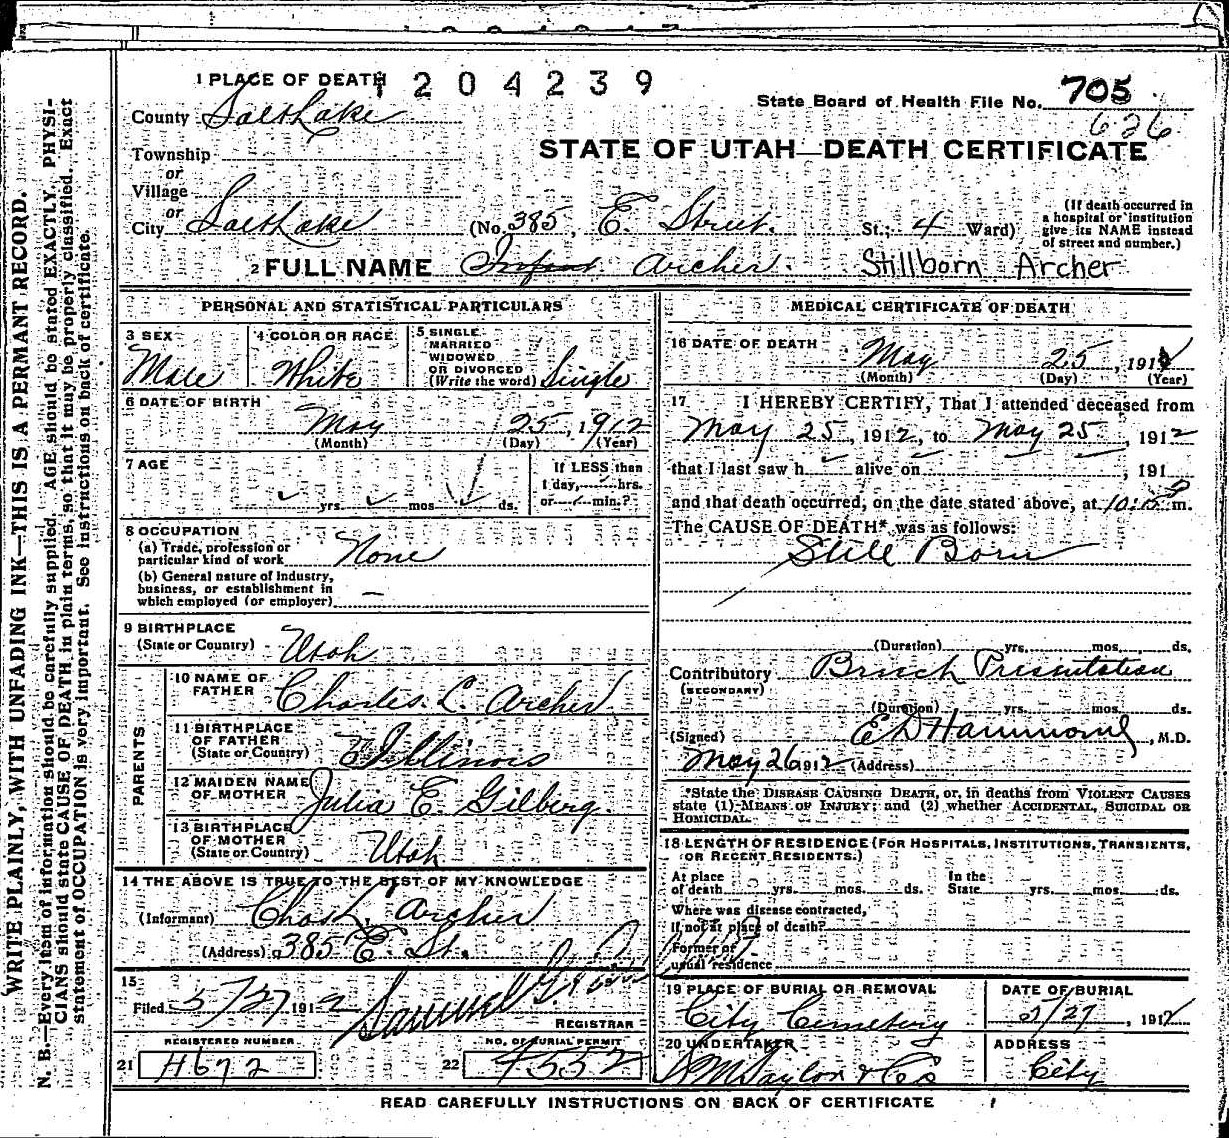 1 PLACE OF DEATH 1204239
State Board of Health File No. 705
626
County Salt Lake
STATE OF UTAH—DEATH CERTIFICATE
Township
or
Village
or
City Salt Lake (No. 385, E. Street. St.; 4 Ward)
(If death occurred in a hospital or institution give its NAME instead of street and number.)
2 FULL NAME Infant Archer. Stillborn Archer
PERSONAL AND STATISTICAL PARTICULARS
3 SEX Male
4 COLOR OR RACE White
5 SINGLE MARRIED WIDOWED OR DIVORCED (Write the word) Single
6 DATE OF BIRTH May 25, 1912
(Month) (Day) (Year)
7 AGE
yrs. mos. ds.
If LESS than 1 day, hrs. or min.?
8 OCCUPATION
(a) Trade, profession or particular kind of work None
(b) General nature of Industry, business, or establishment in which employed (or employer) —
9 BIRTHPLACE (State or Country) Utah
PARENTS
10 NAME OF FATHER Charles L. Archer
11 BIRTHPLACE OF FATHER (State or Country) Illinois
12 MAIDEN NAME OF MOTHER Julia E. Gilberg.
13 BIRTHPLACE OF MOTHER (State or Country) Utah
14 THE ABOVE IS TRUE TO THE BEST OF MY KNOWLEDGE
(Informant) Chas L. Archer
(Address) 385 E. St.
15
Filed 5/27 1912 Samuel G.
REGISTRAR
REGISTERED NUMBER
21 H672
NO. OF BURIAL PERMIT
22 4552
MEDICAL CERTIFICATE OF DEATH
16 DATE OF DEATH May 25, 1912
(Month) (Day) (Year)
17 I HEREBY CERTIFY, That I attended deceased from
May 25, 1912, to May 25, 1912
that I last saw h alive on , 191
and that death occurred, on the date stated above, at 10:15 P m.
The CAUSE OF DEATH* was as follows:
Still Born
(Duration) yrs. mos. ds.
Contributory Breech Presentation
(SECONDARY)
(Duration) yrs. mos. ds.
(Signed) E D Hammond, M.D.
May 26 1912 (Address)
*State the DISEASE CAUSING DEATH, or, in deaths from VIOLENT CAUSES
state (1) MEANS OF INJURY; and (2) whether ACCIDENTAL, SUICIDAL OR
HOMICIDAL.
18 LENGTH OF RESIDENCE (FOR HOSPITALS, INSTITUTIONS, TRANSIENTS,
OR RECENT RESIDENTS.)
At place of death yrs. mos. ds. In the State yrs. mos. ds.
Where was disease contracted,
If not at place of death?
Former or
usual residence
19 PLACE OF BURIAL OR REMOVAL City Cemetery
DATE OF BURIAL 5/27, 1912
20 UNDERTAKER S M Taylor & Co
ADDRESS City
READ CAREFULLY INSTRUCTIONS ON BACK OF CERTIFICATE
WRITE PLAINLY, WITH UNFADING INK—THIS IS A PERMANT RECORD.
N. B.—Every item of information should be carefully supplied. AGE should be stated EXACTLY. PHYSI-
CIANS should state CAUSE OF DEATH in plain terms, so that it may be properly classified. Exact
statement of OCCUPATION is very important. See instructions on back of certificate.